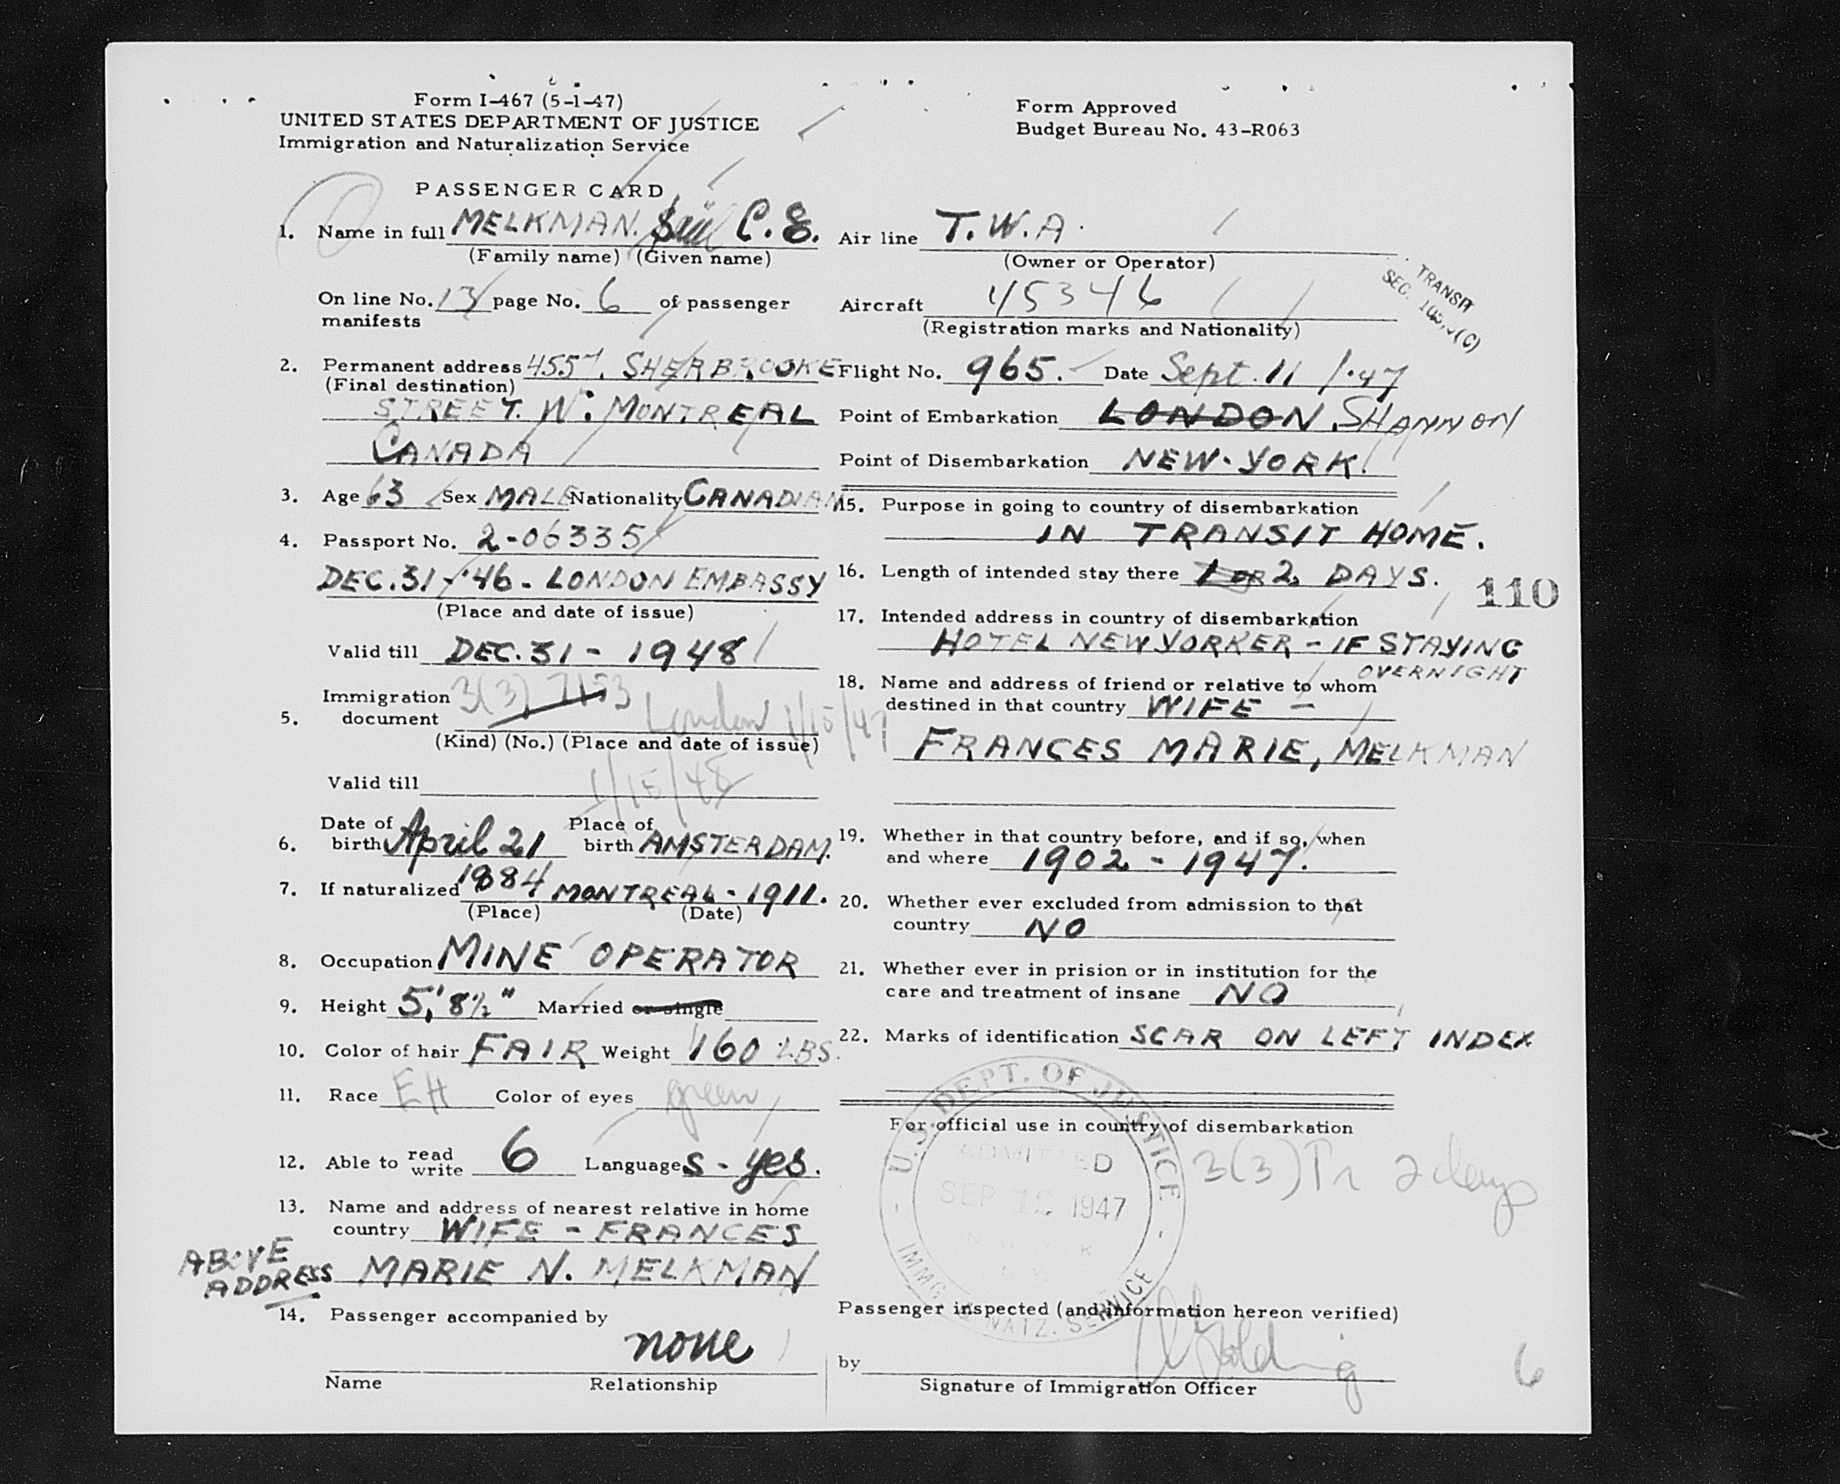 Form I-467 (5-1-47)
UNITED STATES DEPARTMENT OF JUSTICE
Immigration and Naturalization Service
Form Approved
Budget Bureau No. 43-R063
PASSENGER CARD
1. Name in full MELKMAN. C. E.
(Family name) (Given name)
On line No. 13 page No. 6 of passenger
manifests
2. Permanent address 4557, SHERBROOKE
(Final destination)
STREET. W. MONTREAL
CANADA
3. Age 63 Sex MALE Nationality CANADIAN
4. Passport No. 2-06335
DEC. 31-'46 - LONDON EMBASSY
(Place and date of issue)
Valid till DEC. 31 - 1948
Immigration 3(3) 7153
5. document London 1/15/47
(Kind) (No.) (Place and date of issue)
Valid till 1/15/48
Date of Place of
6. birth April 21 birth AMSTERDAM.
7. If naturalized 1884 MONTREAL - 1911.
(Place) (Date)
8. Occupation MINE OPERATOR
9. Height 5' 8½" Married or single
10. Color of hair FAIR Weight 160 LBS.
11. Race EH Color of eyes green
12. Able to read write 6 Languages - yes.
13. Name and address of nearest relative in home
country WIFE - FRANCES
ABOVE
ADDRESS MARIE N. MELKMAN
14. Passenger accompanied by
none
Name Relationship
Air line T.W.A.
(Owner or Operator)
Aircraft 45346
(Registration marks and Nationality)
TRANSIT
SEC.
Flight No. 965. Date Sept. 11 '47
Point of Embarkation LONDON SHANNON
Point of Disembarkation NEW-YORK.
15. Purpose in going to country of disembarkation
IN TRANSIT HOME.
16. Length of intended stay there 1 OR 2 DAYS.
110
17. Intended address in country of disembarkation
HOTEL NEW YORKER - IF STAYING
OVERNIGHT
18. Name and address of friend or relative to whom
destined in that country WIFE -
FRANCES MARIE, MELKMAN
19. Whether in that country before, and if so, when
and where 1902 - 1947.
20. Whether ever excluded from admission to that
country NO
21. Whether ever in prision or in institution for the
care and treatment of insane NO
22. Marks of identification SCAR ON LEFT INDEX
For official use in country of disembarkation
U.S. DEPT. OF JUSTICE
ADMITTED
SEP 12 1947
IMMG. & NATZ. SERVICE
3(3) Tr 2 days
Passenger inspected (and information hereon verified)
by Golding
Signature of Immigration Officer
6